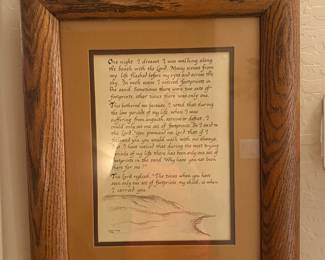 One night I dreamt I was walking along
the beach with the Lord. Many scenes from
my life flashed before my eyes and across the
sky. In each scene I noticed footprints in
the sand. Sometimes there were two sets of
footprints, other times there was only one.
This bothered me because I noted that during
the low periods of my life, when I was
suffering from anguish, sorrow or defeat, I
could only see one set of footprints. So I said to
the Lord, you promised me Lord that if I
followed you you would walk with me always.
But I have noticed that during the most trying
periods of my life there has been only one set of
footprints in the sand. Why have you not been
there for me?"
The Lord replied, "The times when you have
seen only one set of footprints my child, is when
I carried you.